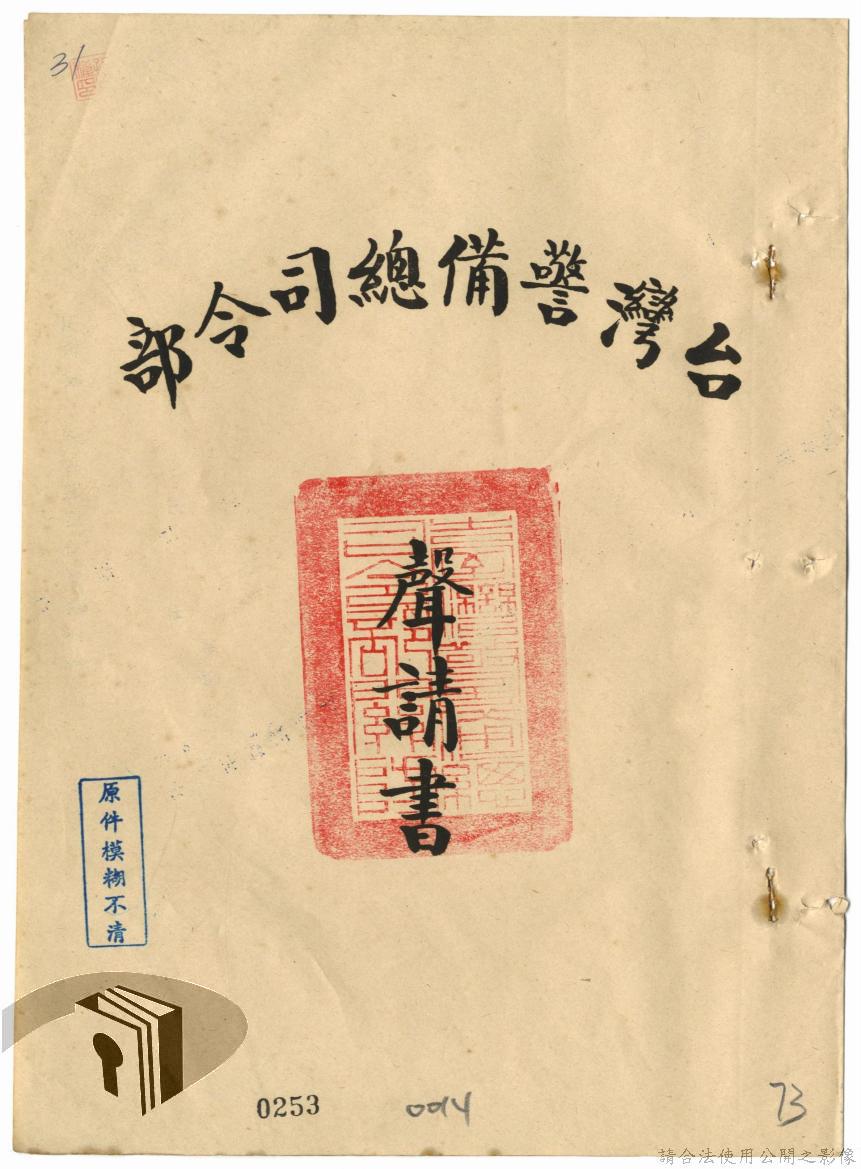 31
台灣警備總司令部
聲請書
原件模糊不清
0253
0014
73
請合法使用公開之影像